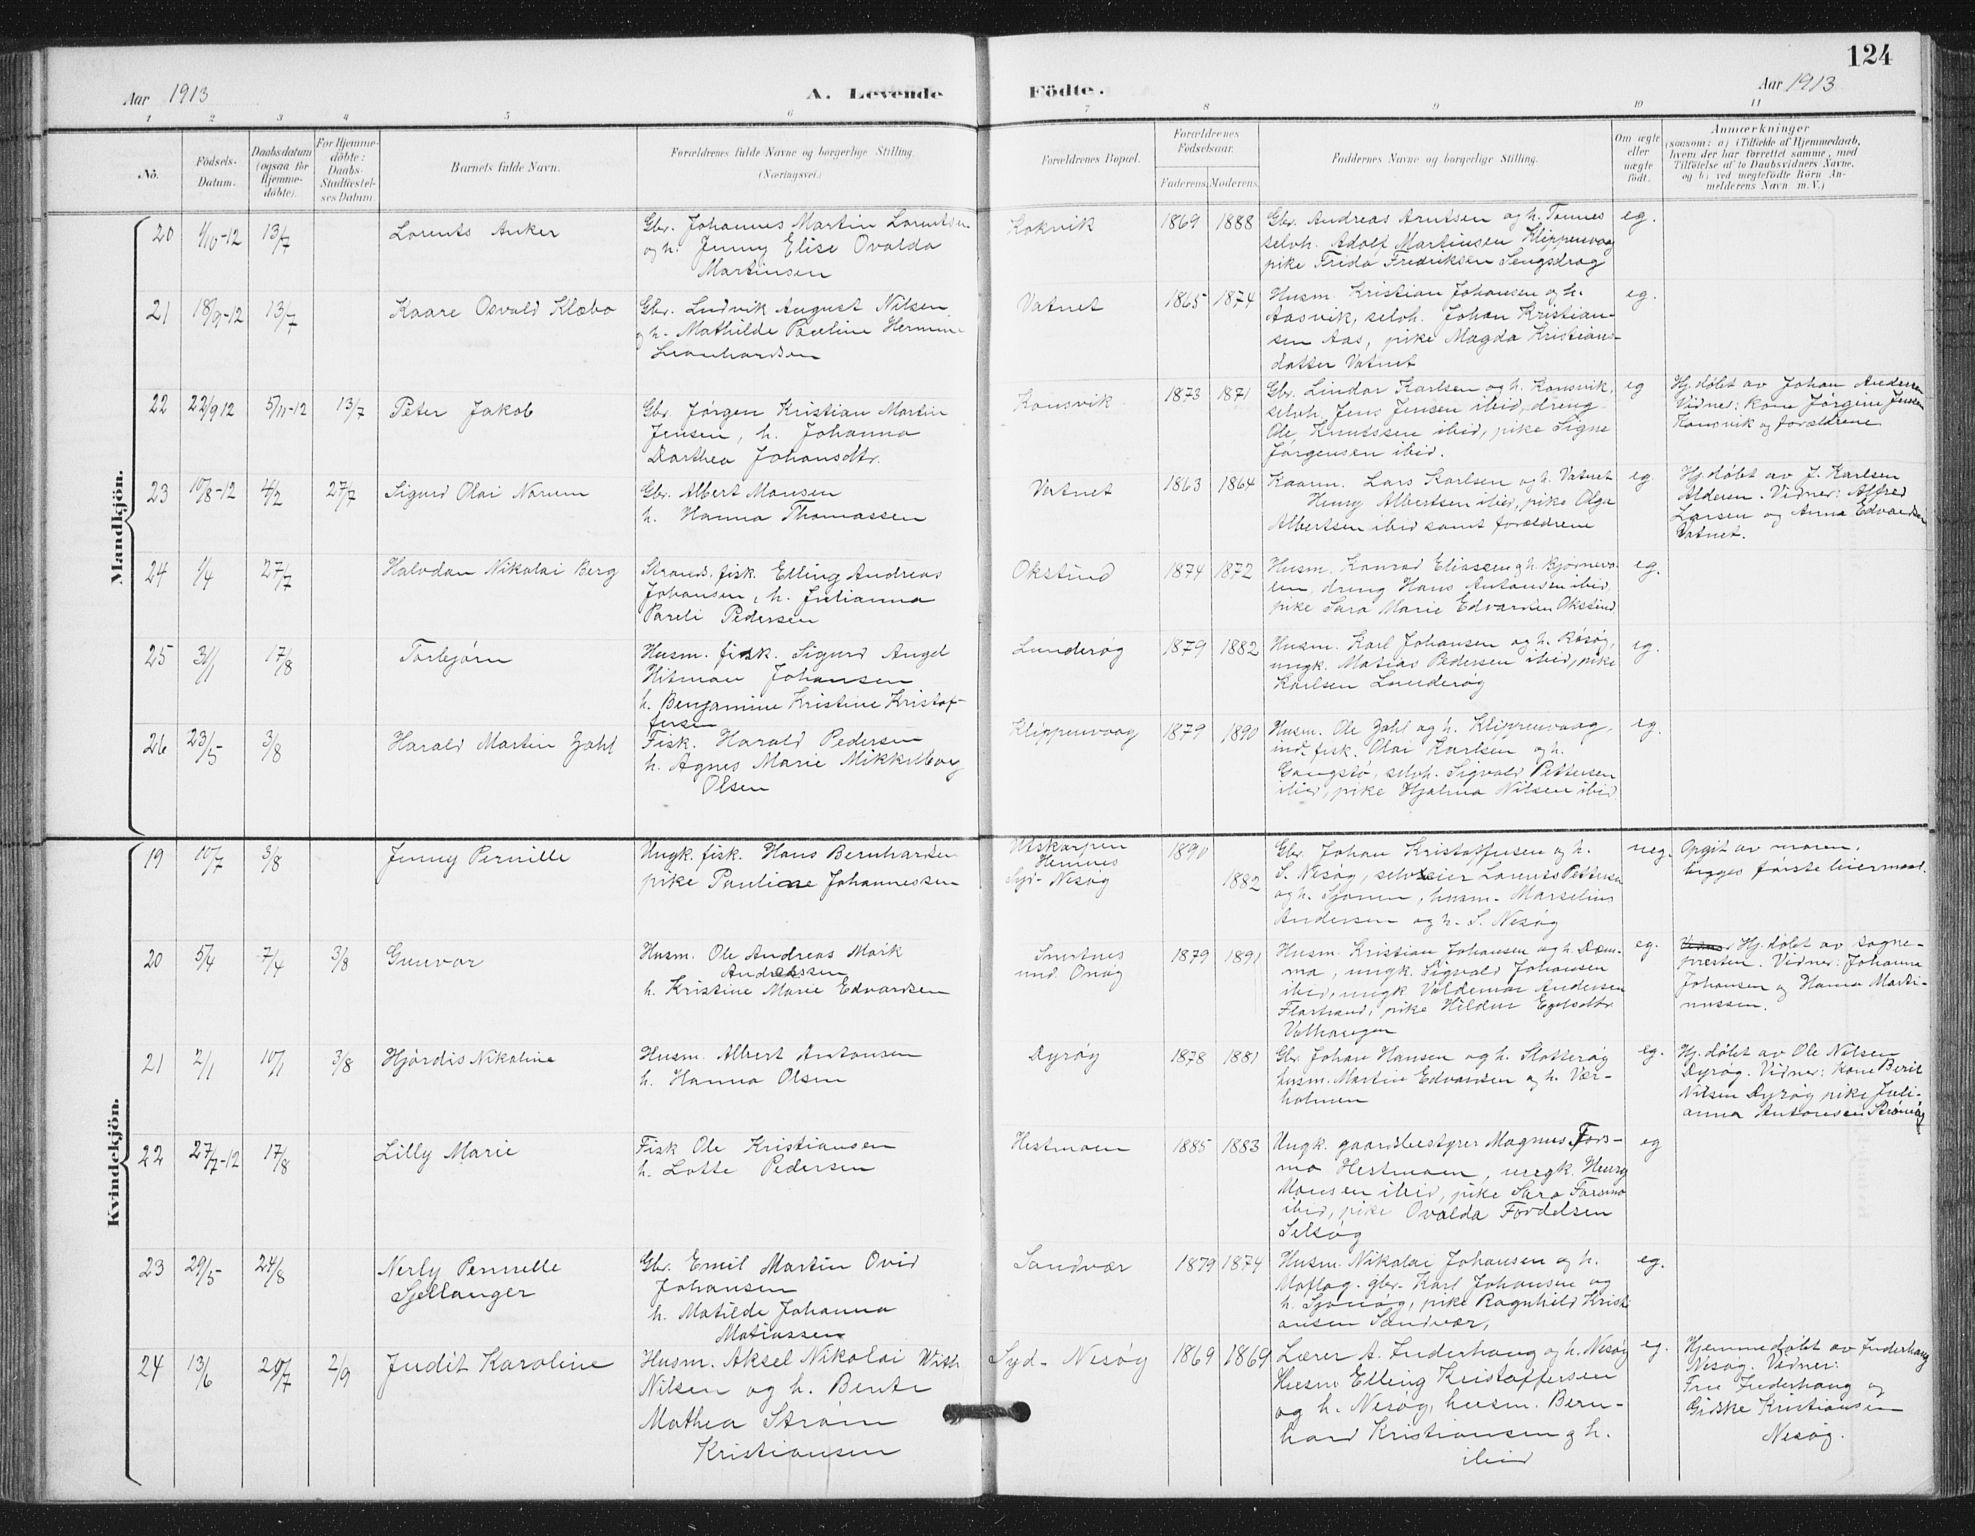 124
Aar 1913
A. Levende Födte.
Aar 1913
1 2 3 4 5 6 7 8 9 10 11
No.
Födsels-Datum.
Daabsdatum (ogsaa for Hjemme-döbte).
For Hjemme-döbte: Daabs-Stadfæstel-ses Datum.
Barnets fulde Navn.
Forældrenes fulde Navne og borgerlige Stilling. (Næringsvei.)
Forældrenes Bopæl.
Forældrenes Födselsaar.
Faderens. Moderens.
Faddernes Navne og borgerlige Stilling.
Om ægte eller uægte födt.
Anmærkninger
(saasom: a) i Tilfælde af Hjemmedaab, hvem der har forrettet samme, med Tilföielse af to Daabsvidners Navne, og b) ved uægtefödte Börn An-melderens Navn m. V.)
Mandkjön.
20 1/10-12 13/7 Lorents Anker
Gbr. Johannes Martin Lorentsen
og h. Jenny Elise Ovalda
Martinsen
Kokvik 1869 1888
Gbr. Andreas Arntsen og h. Tonnes
selvh. Adolf Martinsen Klippenvaag
pike Frida Fredriksen Sengsdrag
eg.
21 18/9-12 13/7 Kaare Osvald Klæbo
Gbr. Ludvik August Nilsen
og h. Mathilde Pauline Hermine
Leonhardsen
Vatnet 1865 1874
Husm. Kristian Johansen og h.
Aasvik, selvh. Johan Kristian-
sen Aas, pike Magda Kristians-
datter Vatnet
eg.
22 22/9 12 5/11-12 13/7 Peter Jakob
Gbr. Jørgen Kristian Martin
Jensen, h. Johanna
Dorthea Johansdtr.
Konsvik 1873 1871
Gbr. Lindor Karlsen og h. Konsvik,
selvh. Jens Jensen ibid, dreng
Ole Knutssen ibid, pike Signe
Jørgensen ibid.
eg
Hj. døbt av Johan Andersen
Vidner: kone Jørgine Jensen
Konsvik og forældrene
23 10/8-12 4/2 27/7 Sigurd Olai Norum
Gbr. Albert Monsen
h. Hanna Thomassen
Vatnet 1863 1864
Kaarm. Lars Karlsen og h. Vatnet
Henry Albertsen ibid, pike Olga
Albertsen ibid samt forældrene
eg.
Hj. døbt av J. Karlsen
Alderen. Vidner: Alfred
Larsen og Anna Edvardsen
Vatnet.
24 1/4 27/7 Halvdan Nikolai Berg
Strands. fisk. Elling Andreas
Johansen, h. Julianna
Pareli Pedersen
Okstind 1874 1872
Husm. Konrad Eliassen og h. Bjørnevo-
len, dreng Hans Antonsen ibid,
pike Sara Marie Edvardsen Okstind
eg.
25 31/1 17/8 Torbjørn
Husm. fisk. Sigurd Angel
Hitman Johansen
h. Benjamine Kristine Kristof-
fersen
Lunderøg 1879 1882
Husm. Karl Johansen og h. Røsøg,
ungk. Matias Pedersen ibid, pike
Karlsen Lunderøg
eg.
26 23/5 3/8 Harald Martin Zahl
Fisk. Harald Pedersen
h. Agnes Marie Mikkelborg
Olsen
Klippenvaag 1879 1890
Husm. Ole Zahl og h. Klippenvaag,
ind. fisk. Olai Karlsen og h.
Gangstø, selvh. Sigvald Pettersen
ibid, pike Hjalma Nilsen ibid
eg.
Kvindekjön.
19 10/7 3/8 Jenny Pernille
Ungk. fisk. Hans Bernhardsen
pike Pauline Johannessen
Utskarpen
Hemnes
Syd-Nesøg
1890
1882
Gbr. Johan Kristoffersen og h.
S. Nesøg, selveier Lorents Pettersen
og h. Sjonen, husm. Marselius
Andersen og h. S. Nesøg
ueg.
Opgit av moren.
begges første leiermaal.
20 5/4 7/4 3/8 Gunvor
Husm. Ole Andreas Mørk
Andreassen
h. Kristine Marie Edvardsen
Smitnes
und. Onøg
1879 1891
Husm. Kristian Johansen og h. Døn-
na, ungk. Sigvald Johansen
ibid, ungk Valdemar Andersen
Flostrand, pike Hildur Egelsdtr
Valhaugen
eg.
Hj. døbt av sogne-
presten. Vidner: Johanna
Johansen og Hanna Marti-
nussen.
21 2/1 10/1 3/8 Hjørdis Nikoline
Husm. Albert Antonsen
h. Hanna Olsen
Dyrøy 1878 1881
Gbr. Johan Hansen og h. Slotterøg
husm. Martin Edvardsen og h. Vær-
holmen
eg.
Hj. døbt av Ole Nilsen
Dyrøg. Vidner: kone Berit
Nilsen Dyrøg pike Juli-
anna Antonsen Strømøg
22 27/7-12 17/8 Lilly Marie
Fisk Ole Kristiansen
h. Lotte Pedersen
Hestmoen 1885 1883
Ungk. gaardsbestyrer Magnus Fors-
mo Hestmoen, ungk. Henry
Monsen ibid, pike Sara Forsmo
ibid, pike Ovalda Fordelsen
Selsøg
eg
23 29/5 24/8 Nerly Pernelle
Sjellanger
Gbr. Emil Martin Ovid
Johansen
h. Matilde Johanna
Matiassen
Sandvær 1879 1874
Husm. Nikolai Johansen og h.
Moflag. gbr. Karl Johansen og
h. Sjonøg, pike Ragnhild Kristi
ansen Sandvær,
eg.
24 13/6 20/7 2/9 Judit Karoline
Husm. Aksel Nikolai With
Nilsen og h. Bente
Mathea Strøm
Kristiansen
Syd-Nesøg 1869 1869
Lærer A. Inderhaug og h. Nesøg
Husm Elling Kristoffersen
og h. Nesøg, husm. Bern-
hard Kristiansen og h.
ibid
eg.
Hjemmedøbt av Inderhaug
Nesøg. Vidner:
Fru Inderhaug og
Gidske Kristiansen
Nesøg.